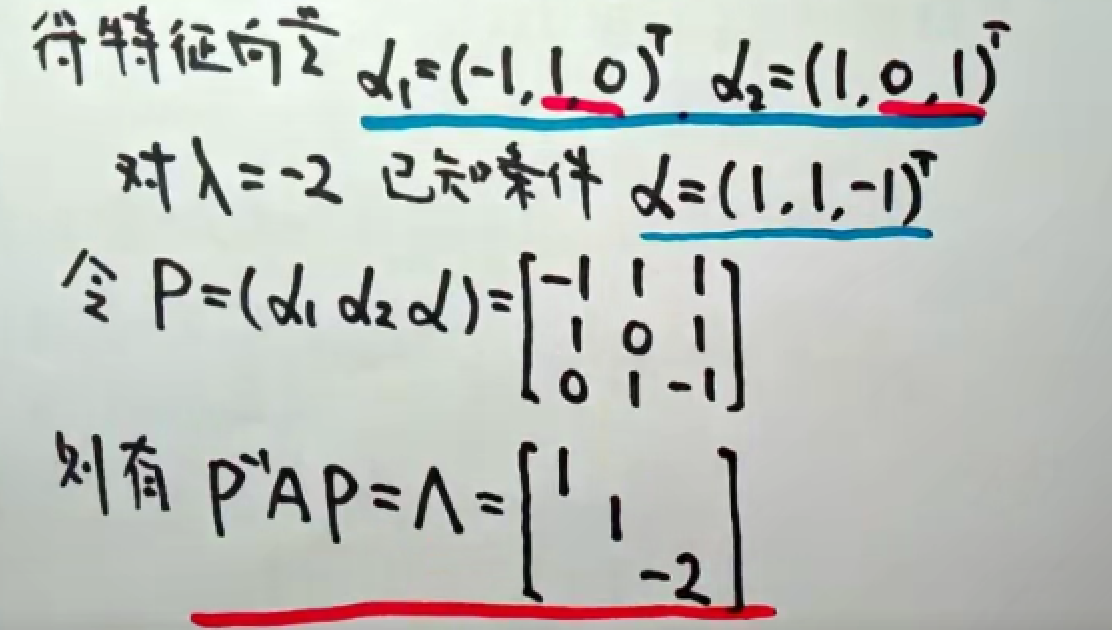 得特征向量 α₁=(-1,1,0)ᵀ α₂=(1,0,1)ᵀ
对λ=-2 已知条件 α=(1,1,-1)ᵀ
令 P=(α₁ α₂ α)=[-1 1 1
1 0 1
0 1 -1]
则有 P⁻¹AP=Λ=[1
1
-2]